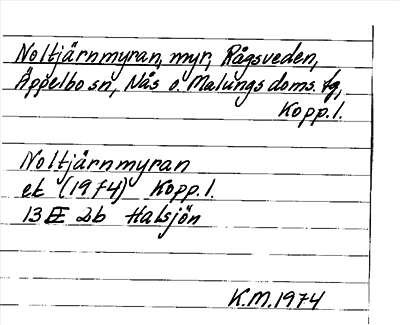 Noltjärnmyran, myr, Rågsveden,
Äppelbo sn, Nås o. Malungs doms. fg,
Kopp.l.
Noltjärnmyran
ek (1974) Kopp.l.
13 E 2b Halsjön
K.M.1974